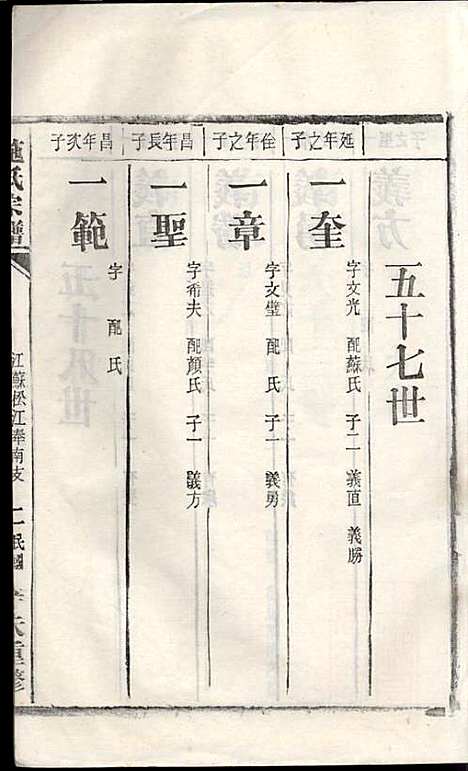 五十七世
延年之子
一奎
字文光 配蘇氏 子二 義直 義勝
佺年之子
一章
字文璧 配 氏 子一 義勇
昌年長子
一聖
字希夫 配顏氏 子一 義方
昌年次子
一範
字 配 氏
施氏宗譜
江蘇松江奉南支
民國
重修